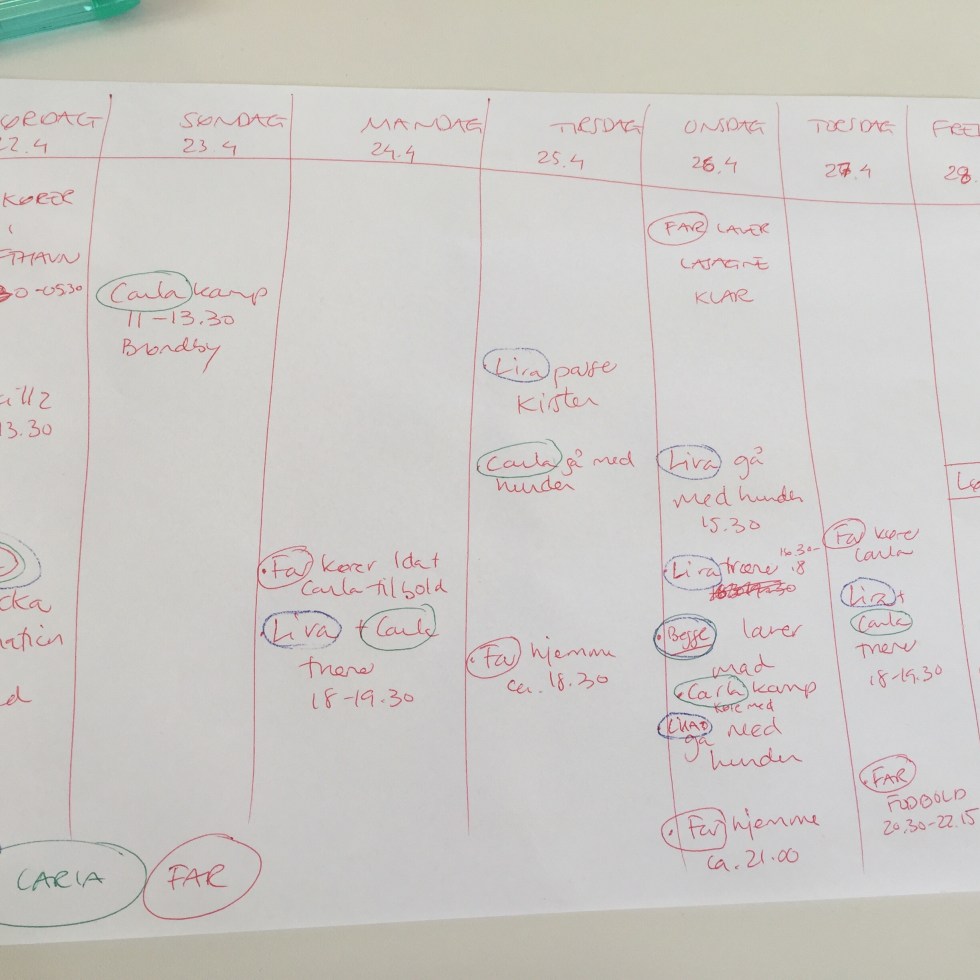 LØRDAG
22.4
KØRER
-05.30
13.30
SØNDAG
23.4
Carla kamp
11-13.30
Brøndby
MANDAG
24.4
Far kører Idat
Carla til bold
Lira + Carla
træne
18-19.30
TIRSDAG
25.4
Lira passe
Kirsten
Carla gå med
hunden
Far hjemme
ca. 18.30
ONSDAG
26.4
FAR LAVER
LASAGNE
KLAR
Lira gå
med hunden
15.30
Lira træne 16.30-18
Begge laver
mad
Carla kamp
køre med
gå med
hunden
Far hjemme
ca. 21.00
TORSDAG
27.4
Far kører
Carla
Lira +
Carla
træne
18-19.30
FAR
FODBOLD
20.30-22.15
FRE
28.
CARLA
FAR